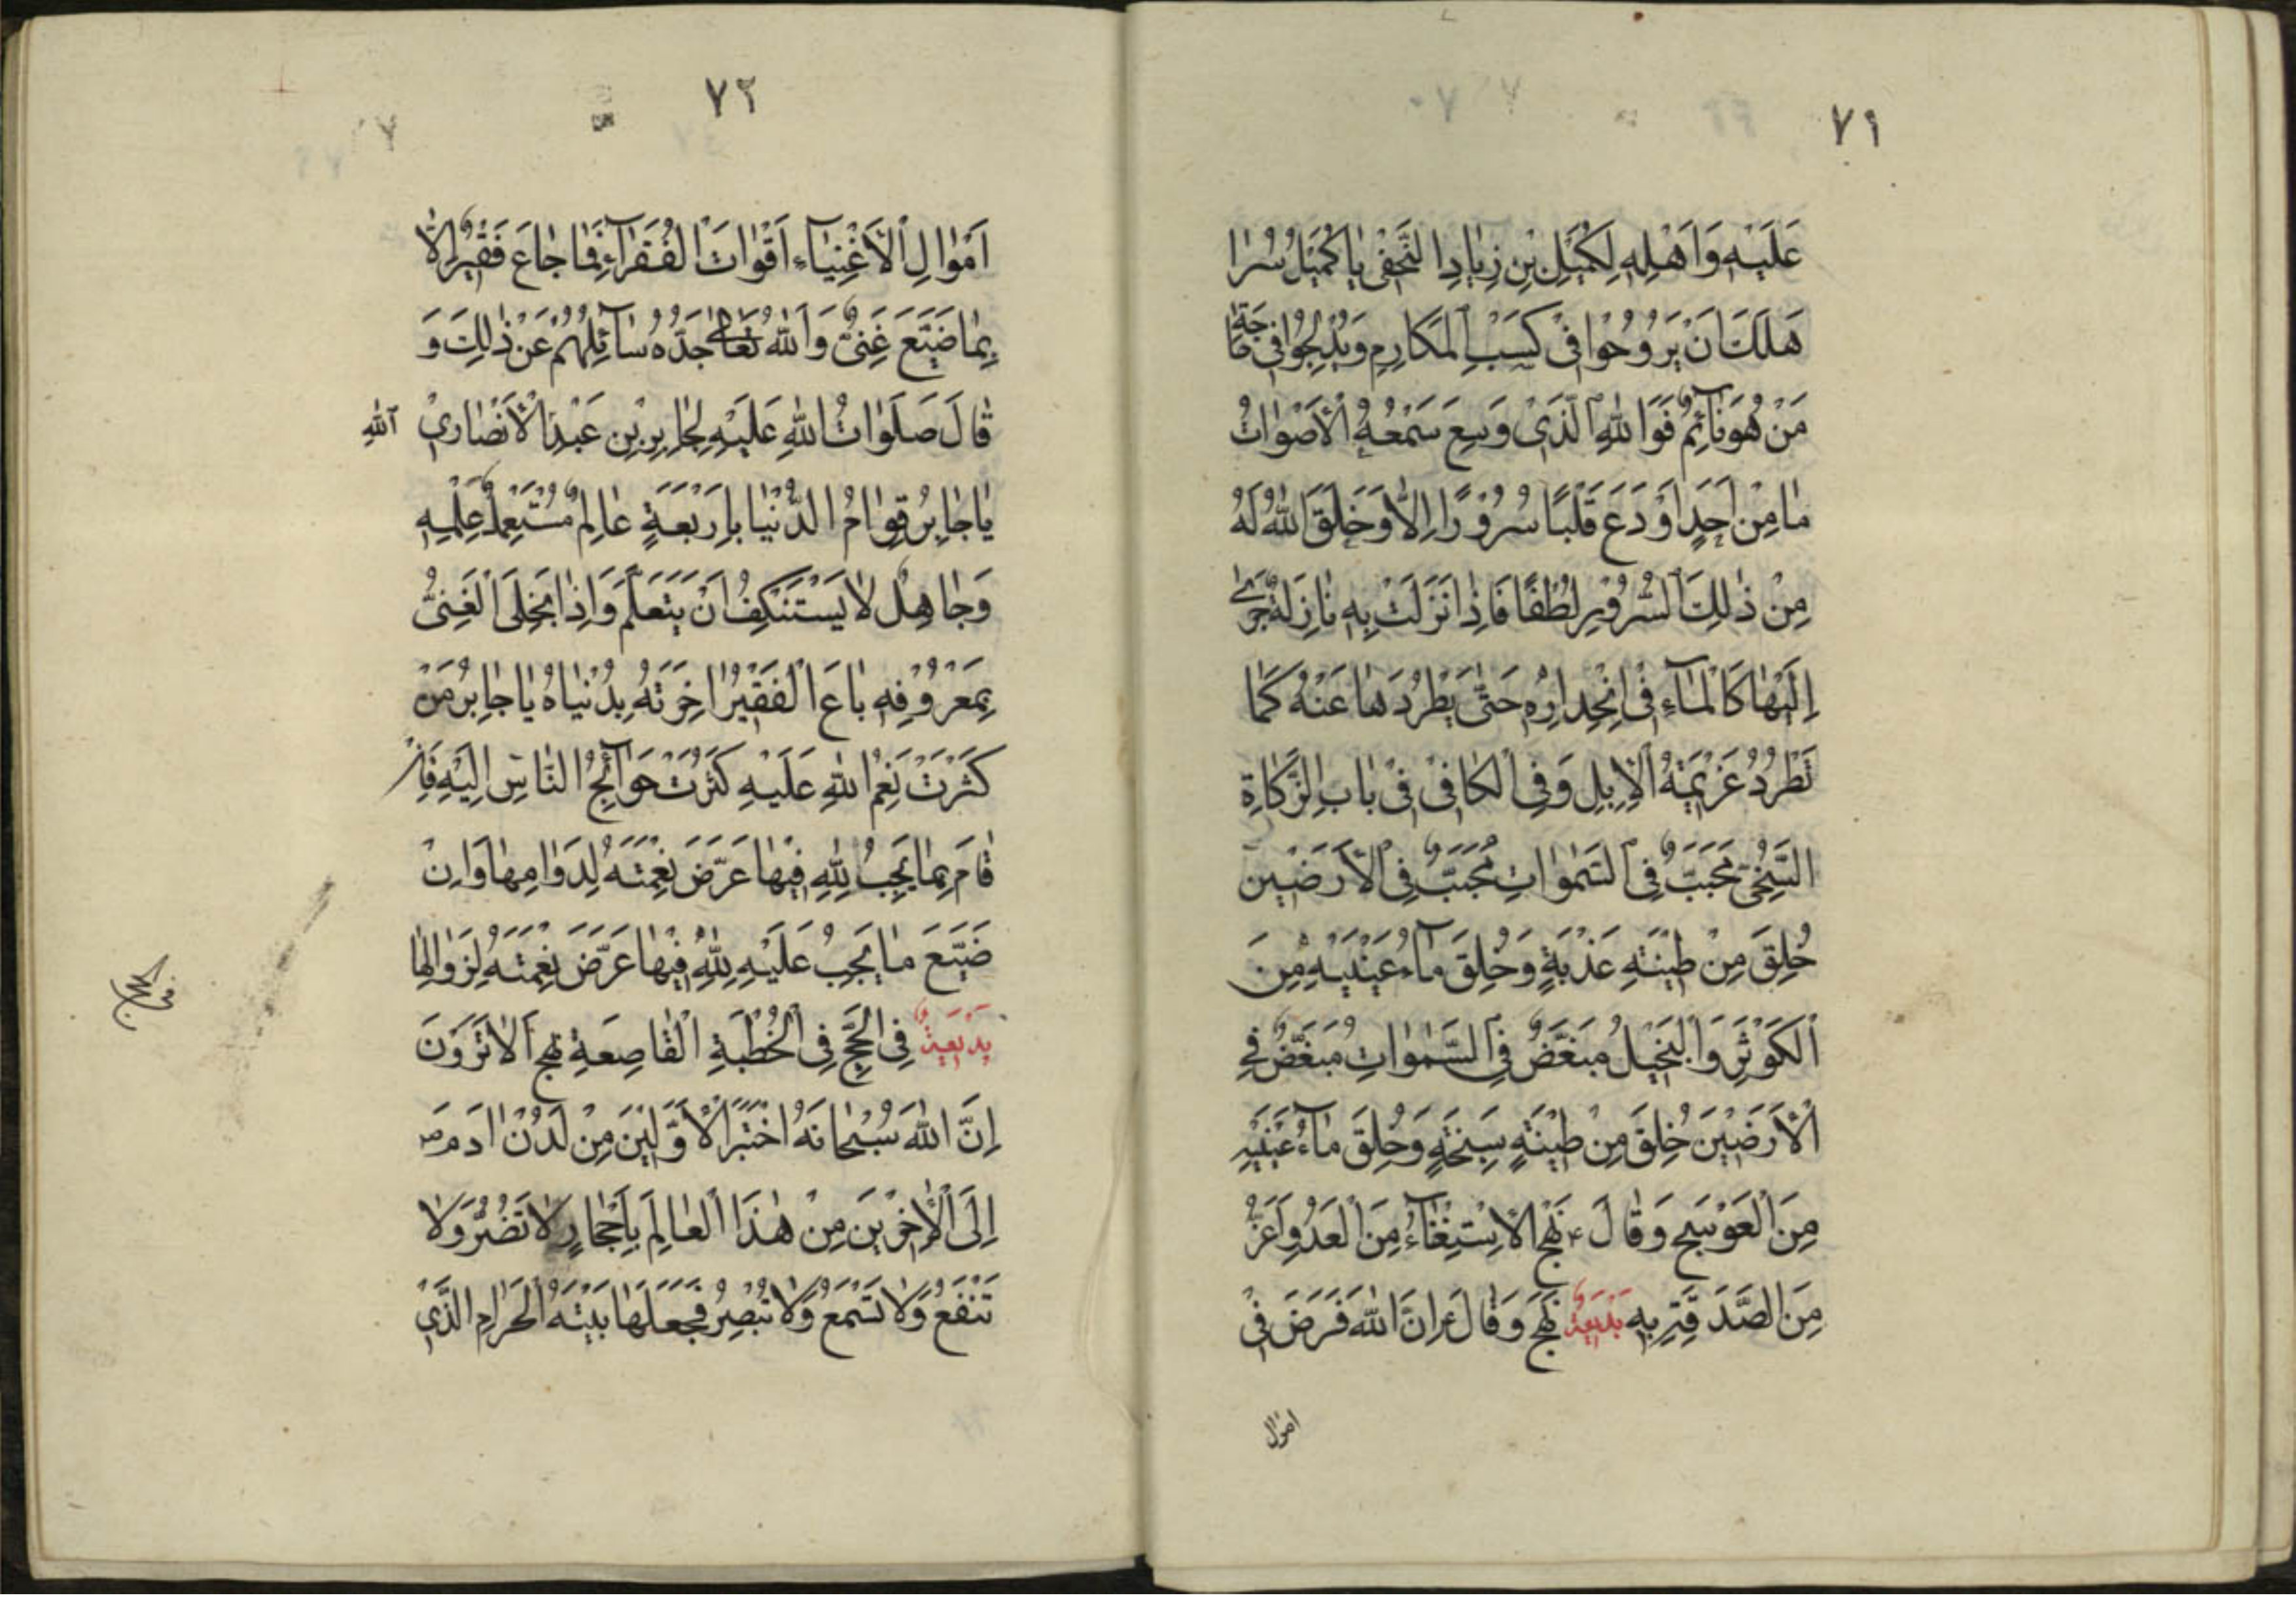 ٧١
عَلَيْهِ وَاَهْلِهِ لِكُمَيْلِ بْنِ زِيَادِ النَّخَعِىِّ يَا كُمَيْلُ مُرْ
هَلَكَ اَنْ يَرُوحُوا فِى كَسْبِ الْمَكَارِمِ وَيُدْلِجُوا فِى حَاجَةِ
مَنْ هُوَ نَآئِمٌ فَوَاللهِ الَّذِى وَسِعَ سَمْعُهُ الْأَصْوَاتَ
مَا مِنْ اَحَدٍ اَوْدَعَ قَلْبًا سُرُوْرًا اِلَّا وَخَلَقَ اللهُ لَهُ
مِنْ ذٰلِكَ السُّرُوْرِ لُطْفًا فَاِذَا نَزَلَتْ بِهِ نَازِلَةٌ جَرٰى
اِلَيْهَا كَالْمَآءِ فِى انْحِدَارِهِ حَتّٰى يَطْرُدَهَا عَنْهُ كَمَا
تُطْرَدُ غَرِيْبَةُ الْاِبِلِ وَفِى الْكَافِى فِى بَابِ الزَّكَاةِ
السَّخِىُّ مُحَبَّبٌ فِى السَّمٰوَاتِ مُحَبَّبٌ فِى الْاَرَضِيْنَ
خُلِقَ مِنْ طِيْنَةٍ عَذْبَةٍ وَخُلِقَ مَآءُ عَيْنَيْهِ مِنَ
الْكَوْثَرِ وَالْبَخِيْلُ مُبَغَّضٌ فِى السَّمٰوَاتِ مُبَغَّضٌ فِى
الْاَرَضِيْنَ خُلِقَ مِنْ طِيْنَةٍ سَبِخَةٍ وَخُلِقَ مَآءُ عَيْنَيْهِ
مِنَ الْعَوْسَجِ وَقَالَ ع نَهْج الْاِسْتِغْنَآءُ مِنَ الْعَدُوِ اَعَزُّ
مِنَ الصَّدَقَةِ بِهِ بَدِيْعَةٌ نَهْج وَقَالَ ع اِنَّ اللهَ فَرَضَ فِى
اموال
٧٢
اَمْوَالِ الْاَغْنِيَآءِ اَقْوَاتَ الْفُقَرَآءِ فَمَا جَاعَ فَقِيْرٌ اِلَّا
بِمَا ضَيَّعَ غَنِىٌّ وَاللهُ تَعَالٰى جَدُّهُ سَآئِلُهُمْ عَنْ ذٰلِكَ وَ
قَالَ صَلَوَاتُ اللهِ عَلَيْهِ لِجَابِرِ بْنِ عَبْدِ الْاَنْصَارِىْ
اللهِ
يَا جَابِرُ قِوَامُ الدُّنْيَا بِاَرْبَعَةٍ عَالِمٌ مُسْتَعْمِلٌ عِلْمِهِ
وَجَاهِلٌ لَا يَسْتَنْكِفُ اَنْ يَتَعَلَّمَ وَاِذَا بَخِلَ الْغَنِىُّ
بِمَعْرُوْفِهِ بَاعَ الْفَقِيْرُ اٰخِرَتَهُ بِدُنْيَاهُ يَا جَابِرُ مَنْ
كَثُرَتْ نِعَمُ اللهِ عَلَيْهِ كَثُرَتْ حَوَآئِجُ النَّاسِ اِلَيْهِ فَاِنْ
قَامَ بِمَا يَجِبُ لِلّٰهِ فِيْهَا عَرَّضَ نِعْمَتَهُ لِدَوَامِهَا وَاِنْ
ضَيَّعَ مَا يَجِبُ عَلَيْهِ لِلّٰهِ فِيْهَا عَرَّضَ نِعْمَتَهُ لِزَوَالِهَا
بَدِيْعَةٌ فِى الْحَجِّ فِى الْخُطْبَةِ الْقَاصِعَةِ نهج اَلَا تَرَوْنَ
اِنَّ اللهَ سُبْحَانَهُ اخْتَبَرَ الْاَوَّلِيْنَ مِنْ لَدُنْ اٰدَمَ ص
اِلَى الْاٰخِرِيْنَ مِنْ هٰذَا الْعَالَمِ بِاَحْجَارٍ لَا تَضُرُّ وَلَا
تَنْفَعُ وَلَا تَسْمَعُ وَلَا تُبْصِرُ فَجَعَلَهَا بَيْتَهُ الْحَرَامِ الَّذِى